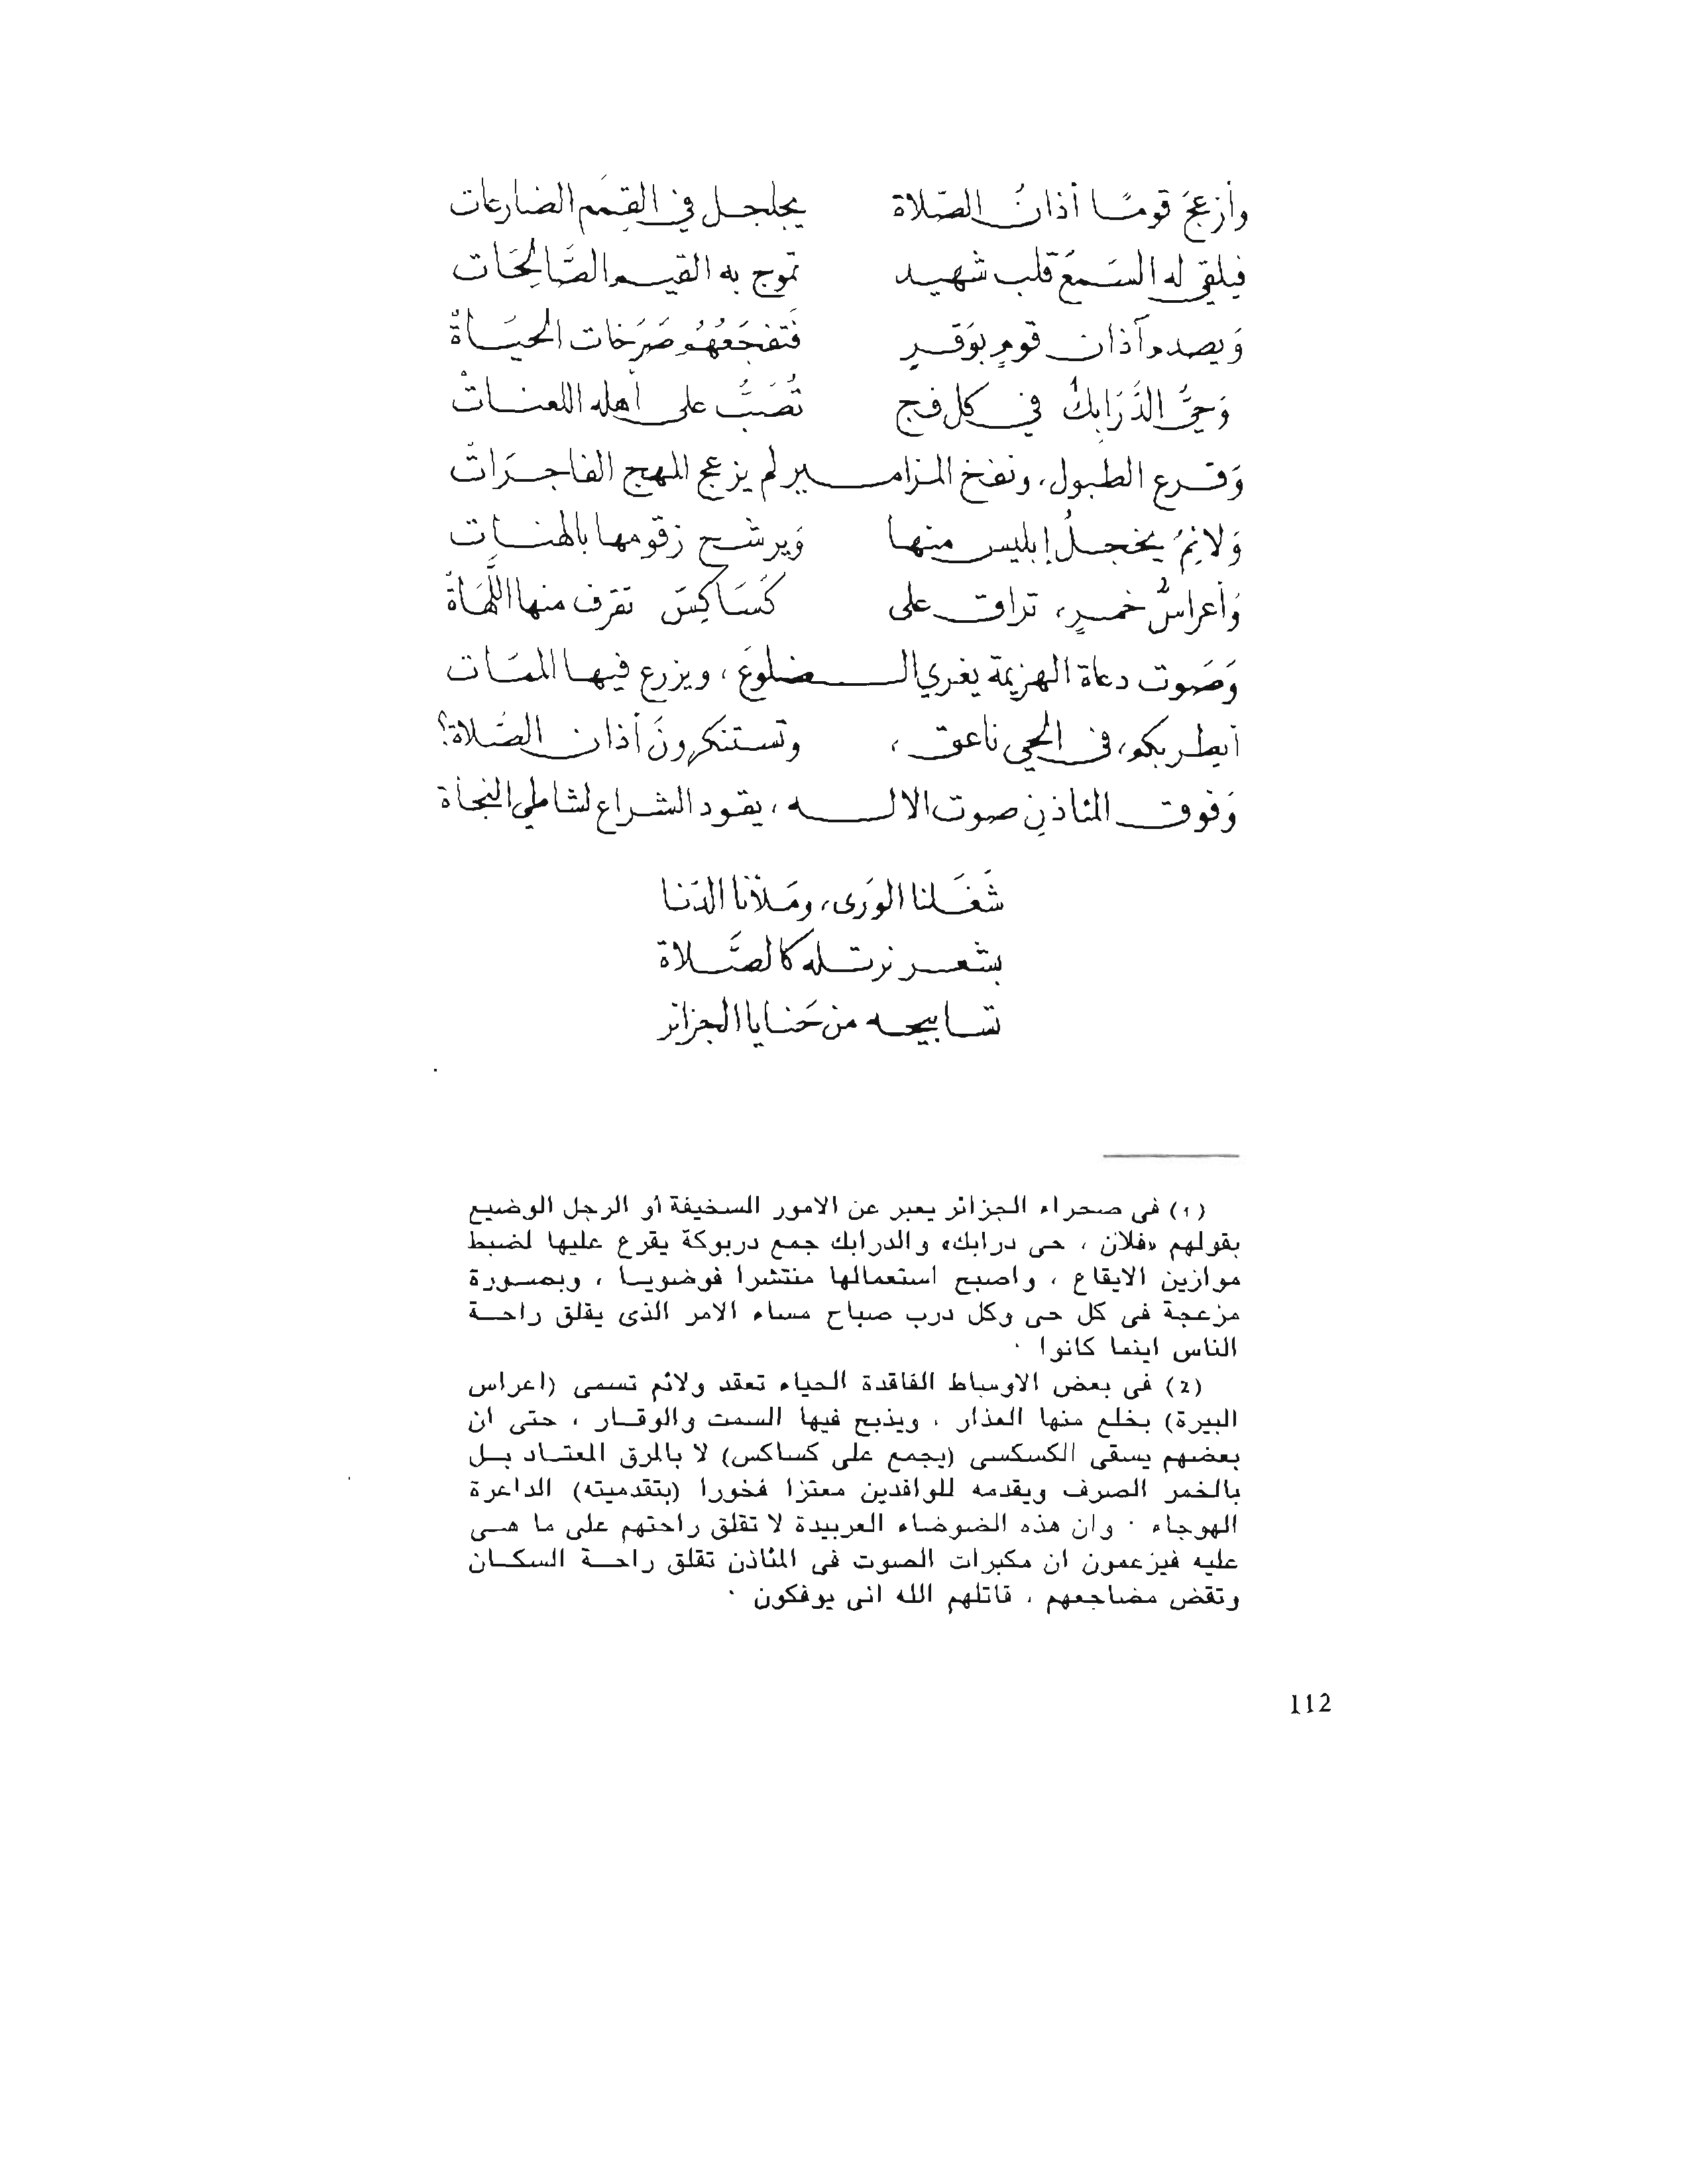 وأزعجَ قومًا أذانُ الصّلاة يجلجل في القِمَم الضارعات
فيلقي له السَمعَ قلب شهيد تموج به القيم الصَّالِحَات
وَيصدم آذان قومٍ بوَقرٍ فَتفجَعُهُم صَرَخات الحيَاةْ
وَحيُّ الدَّرَابكُ في كل فج تُصَبُّ على أهله اللعناتْ
وَقرع الطبول، ونفخ المزامير لم يزعج المهج الفاجرَاتْ
وَلائِمُ يخجلُ إبليس منها وَيرشح زقومها بالهنات
وَأعراسُ خمرٍ، تراق على كُسَاكِسَ تقرف منها اللَّهَاةْ
وَصَوت دعاة الهزيمة يغري الضلوعَ، ويزرع فيها الممَات
أيطربكم، في الحي ناعق، وتستنكرونَ أذان الصَّلاة؟
وَفوق المئاذنِ صوت الاله، يقود الشراع لشاطئ النجاة
شَغَلنا الوَرى، ومَلأنا الدّنا
بشعر نرتله كالصَّلاة
تسابيحه من حَنايا الجزائر
(1) فى صحراء الجزائر يعبر عن الامور السخيفة أو الرجل الوضيع
بقولهم «فلان ، حى درابك» والدرابك جمع دربوكة يقرع عليها لضبط
موازين الايقاع ، واصبح استعمالها منتشرا فوضويا ، وبصورة
مزعجة فى كل حى وكل درب صباح مساء الامر الذى يقلق راحة
الناس اينما كانوا ·
(2) فى بعض الاوساط الفاقدة الحياء تعقد ولائم تسمى (اعراس
البيرة) بخلع منها العذار ، ويذبح فيها السمت والوقار ، حتى ان
بعضهم يسقى الكسكسى (يجمع على كساكس) لا بالمرق المعتاد بل
بالخمر الصرف ويقدمه للوافدين معتزا فخورا (بتقدميته) الداعرة
الهوجاء · وان هذه الضوضاء العربيدة لا تقلق راحتهم على ما هى
عليه فيزعمون ان مكبرات الصوت فى المئاذن تقلق راحة السكان
وتقض مضاجعهم ، قاتلهم الله انى يوفكون ·
112